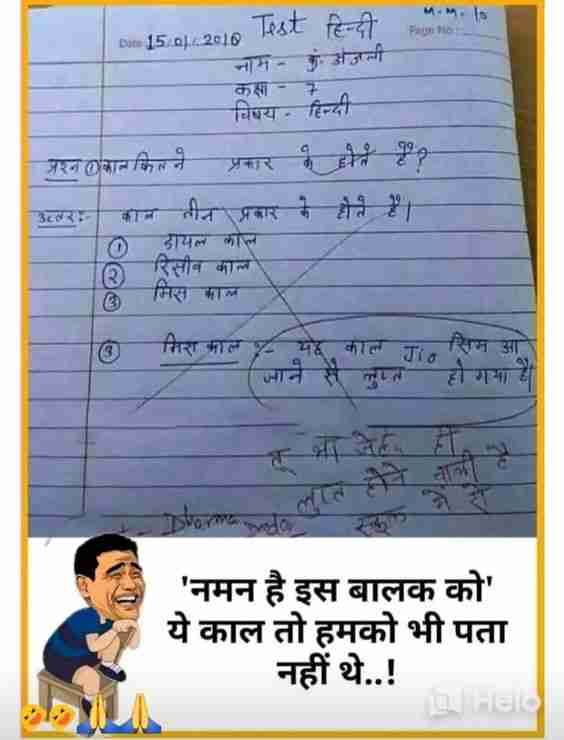 Test हिन्दी
M.M. 10
Date 15/01/2018
Page No.:
नाम - कु. अंजली
कक्षा - 7
विषय - हिन्दी
प्रश्न ① काल कितने प्रकार के होते हैं?
उत्तर:- काल तीन प्रकार के होते हैं।
① डायल काल
② रिसीव काल
③ मिस काल
③ मिस काल :- यह काल Jio सिम आ
जाने से लुप्त हो गया है।
तू भी जल्द ही
लुप्त होने वाली है
स्कूल में से
'नमन है इस बालक को'
ये काल तो हमको भी पता
नहीं थे..!
Helo